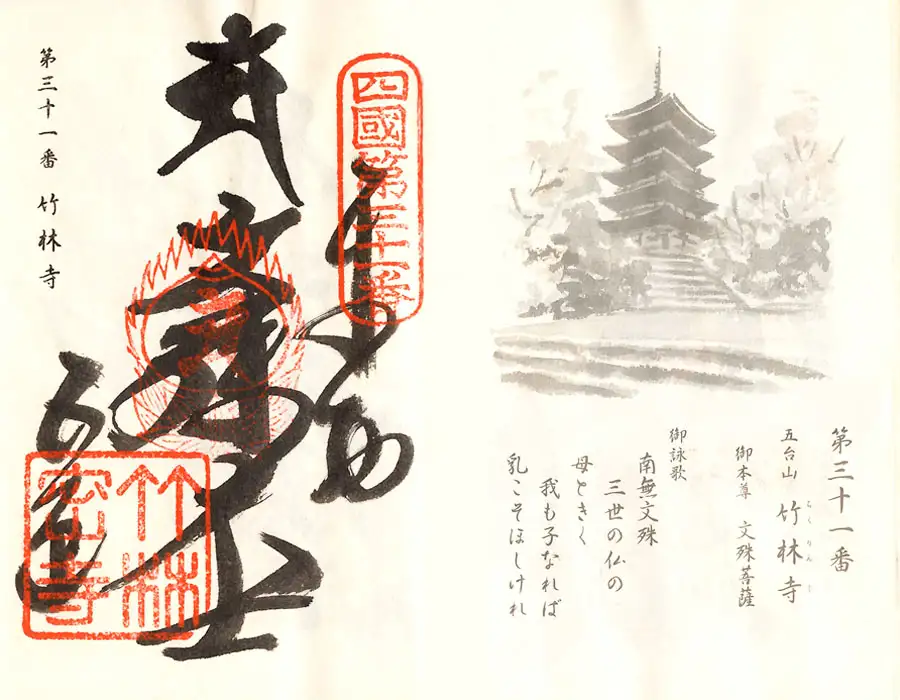 第三十一番
五台山 竹林寺
ちくりんじ
御本尊 文殊菩薩
御詠歌
南無文殊
三世の仏の
母ときく
我も子なれば
乳こそほしけれ
四國第三十一番
文殊大士
竹林
密寺
第三十一番 竹林寺